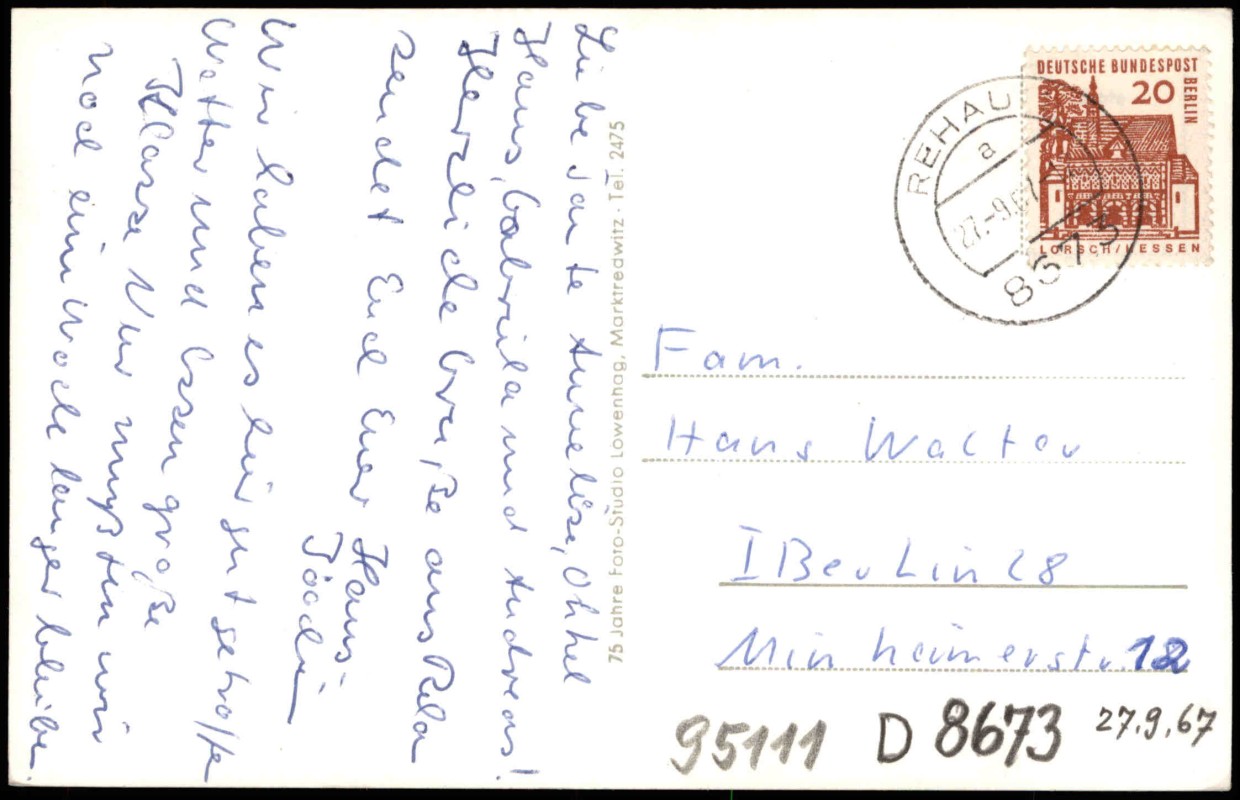 Liebe Tante Annelise, Ohkel
Hans, Gabriela und Andreas!
Herzliche Grüße aus Rehau
sendet Euch Euer Hans-
Wir haben es hier gut getroffe
Wetter und Essen große
Klasse Nur mußten wir
noch eine Woche länger bleiben.
75 Jahre Foto-Studio Löwenhag, Marktredwitz · Tel. 2475
DEUTSCHE BUNDESPOST
BERLIN
20
LORSCH/HESSEN
REHAU
a
27.-9.67
8673
Fam.
Hans Walter
I Berlin 28
Minheimerstr. 12
95111 D 8673 27.9.67